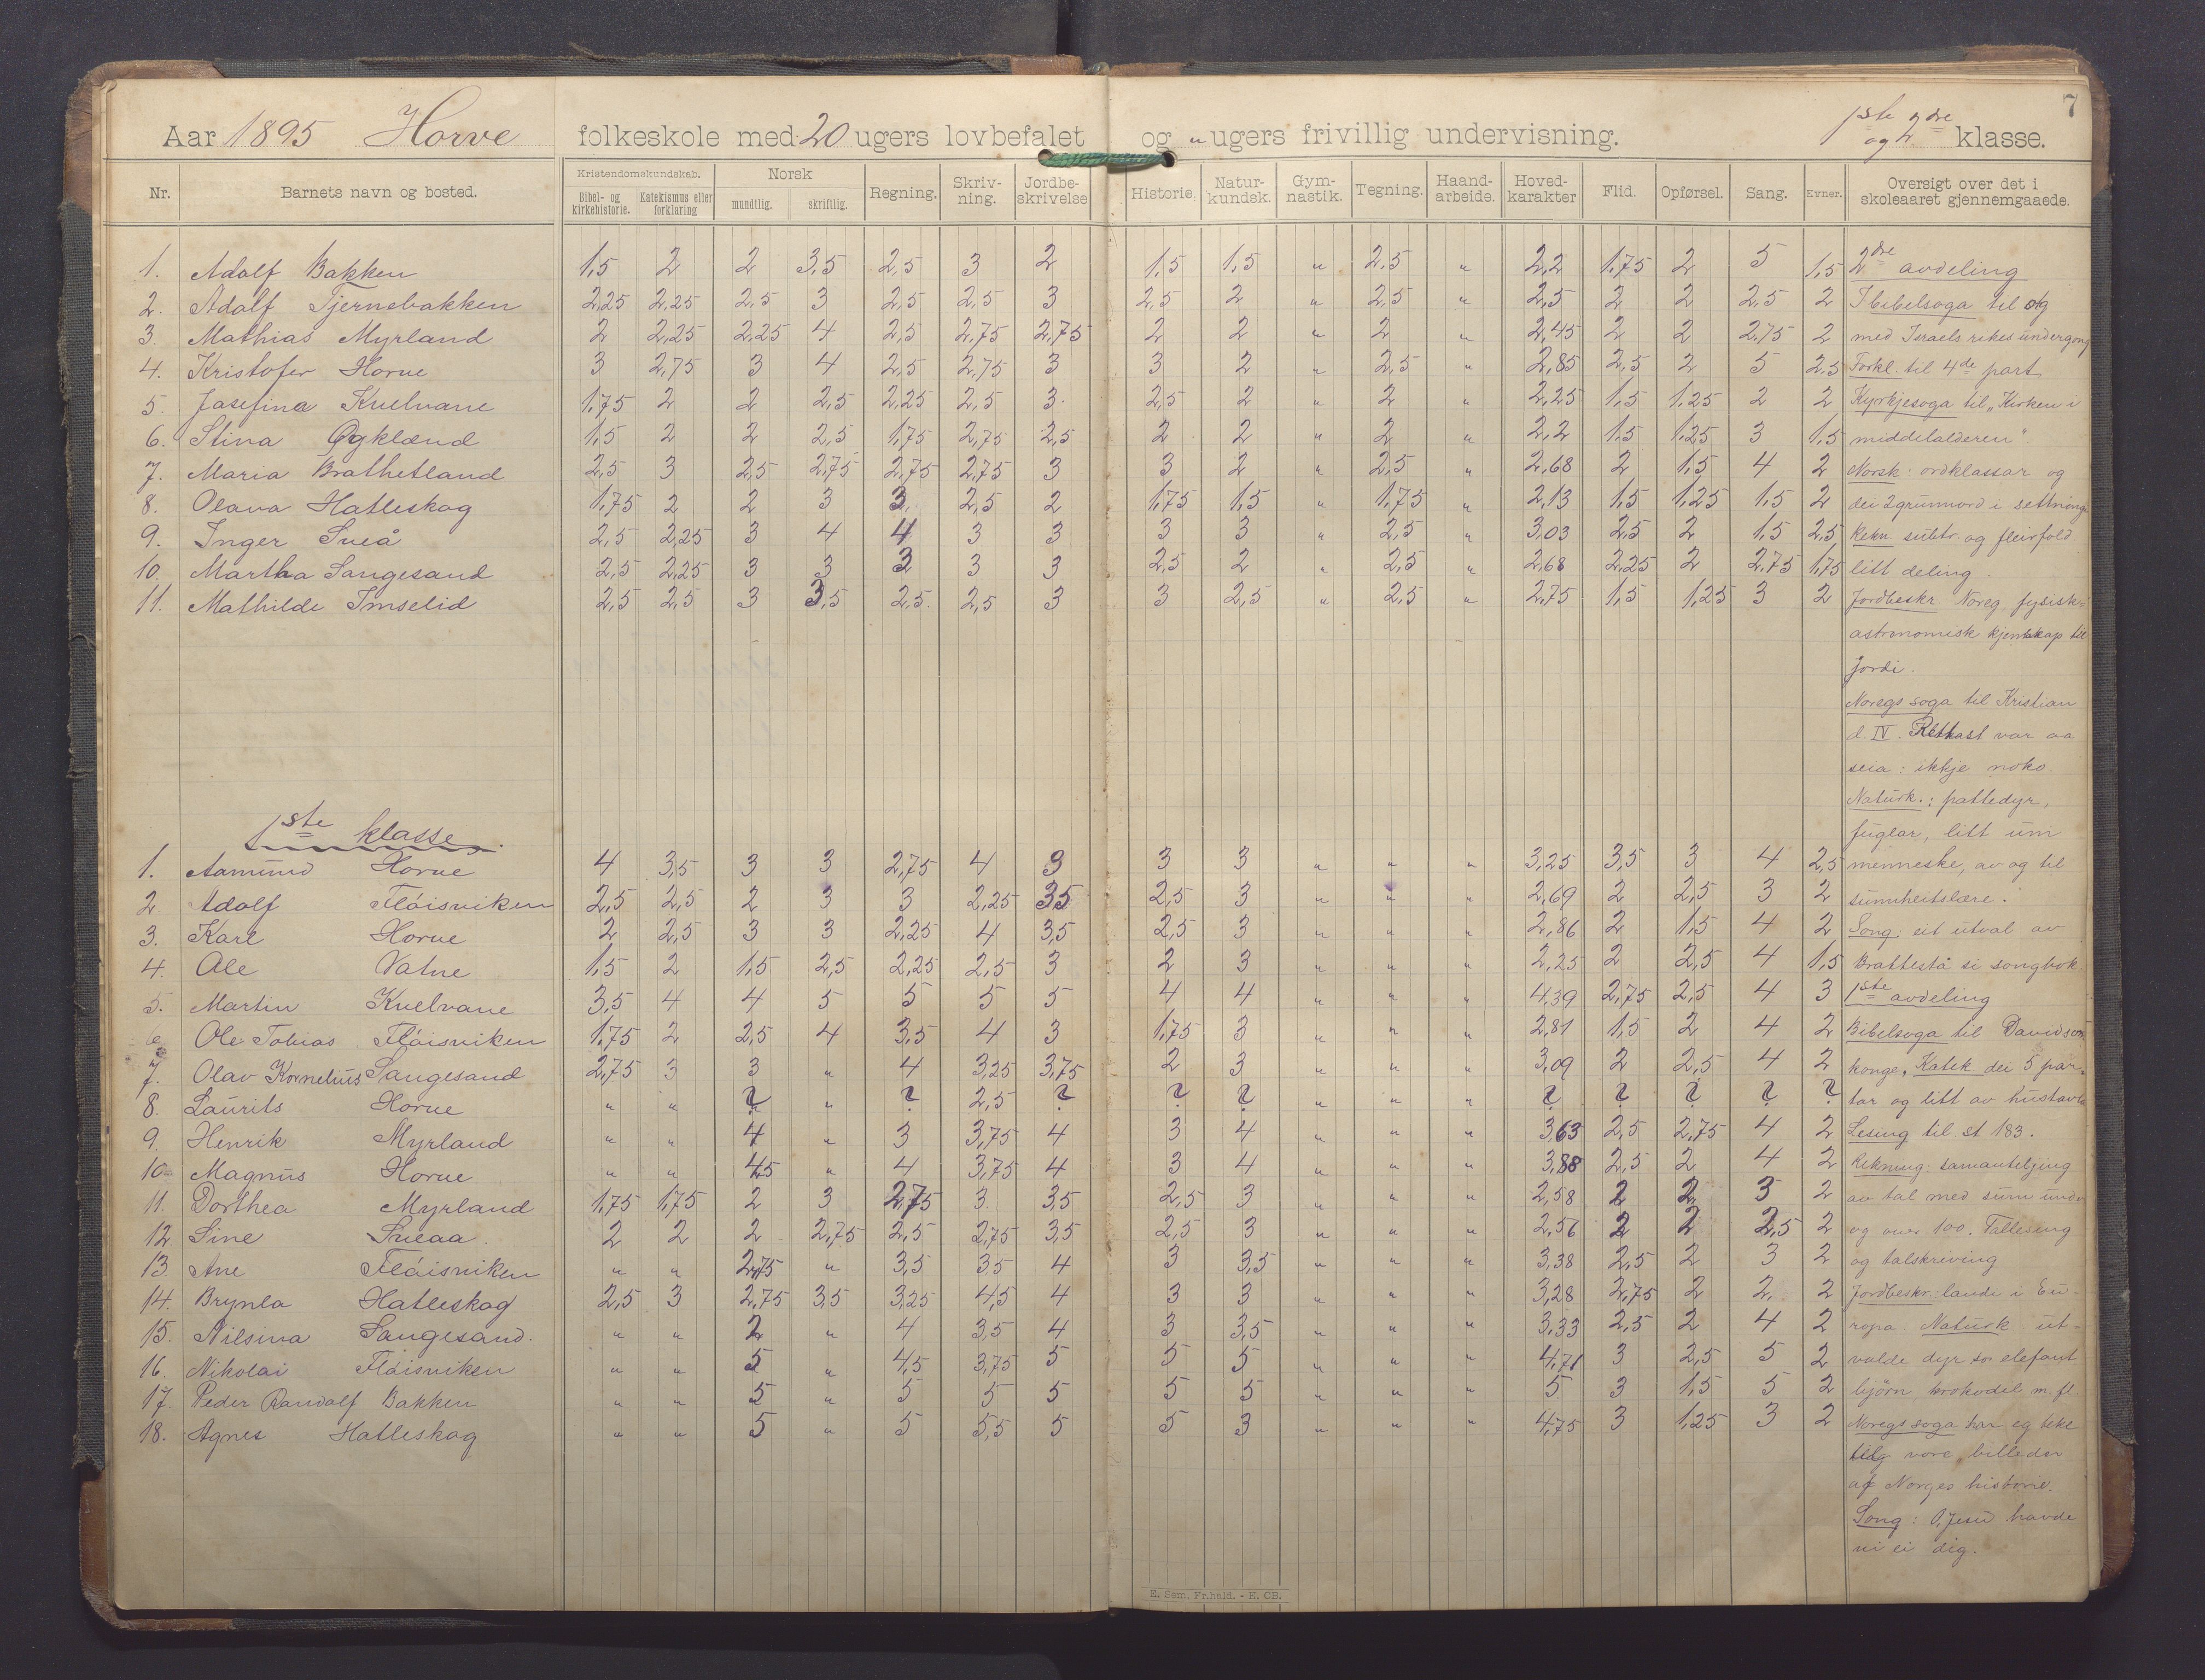 7
Aar 1895 Horve folkeskole med 20 ugers lovbefalet og " ugers frivillig undervisning. 1ste og 2dre klasse.
Nr. Barnets navn og bosted. Kristendomskundskab. Bibel- og kirkehistorie. Katekismus eller forklaring Norsk mundtlig. skriftlig. Regning. Skriv-ning. Jordbe-skrivelse Historie. Natur-kundsk. Gym-nastik. Tegning. Haand-arbeide. Hoved-karakter Flid. Opførsel. Sang. Evner. Oversigt over det i skoleaaret gjennemgaaede.
1. Adolf Bakken 1,5 2 2 3,5 2,5 3 2 1,5 1,5 " 2,5 " 2,2 1,75 2 5 1,5 2dre avdeling
2. Adolf Tjernebakken 2,25 2,25 2,5 3 2,5 2,5 3 2,5 2 " 2,5 " 2,5 2 2 2,5 2 I bibelsoga til og
3. Mathias Myrland 2 2,25 2,25 4 2,5 2,75 2,75 2 2 " 2 " 2,45 2 2 2,75 2 med Israels rikes undergong
4. Kristofer Horve 3 2,75 3 4 2,5 2,75 3 3 2 " 2,5 " 2,85 2,5 2 5 2,5 Forkl. til 4de part
5. Josefina Kvelvane 1,75 2 2 2,5 2,25 2,5 3 2,5 2 " 2 " 2,25 1,5 1,25 2 2 Kyrkjesoga til „Kirken i
6. Stina Øgklænd 1,5 2 2 2,5 1,75 2,75 2,5 2 2 " 2 " 2,2 1,5 1,25 3 1,5 middelalderen".
7. Maria Brathetland 2,5 3 2,5 2,75 2,75 2,75 3 3 2 " 2,5 " 2,68 2 1,5 4 2 Norsk: ordklassar og
8. Olava Hatleskog 1,75 2 2 3 3 2,5 2 1,75 1,5 " 1,75 " 2,13 1,5 1,25 1,5 2 dei 2 grunnord i settningi
9. Inger Sveå 2,5 2,25 3 4 4 3 3 3 3 " 2,5 " 3,03 2,5 2 1,5 2,5 Rekn subtr. og fleirfold.
10. Martha Sangesand 2,5 2,25 3 3 3 3 3 2,5 2 " 2,5 " 2,68 2,25 2 2,75 1,75 litt deling
11. Mathilde Imselid 2,5 2,5 3 3,5 2,5 2,5 3 3 2,5 " 2,5 " 2,75 1,5 1,25 3 2 Jordbeskr. Noreg fysisk-
astronomisk kjennskap til
jordi.
Noregs soga til Kristian
d. IV. Rettast var aa
seia: ikkje noko.
Naturk.: pattedyr,
1ste klasse.
fuglar, litt um
1. Aamund Horve 4 3,5 3 3 2,75 4 3 3 3 " " " 3,25 3,5 3 4 2,5 menneske, av og til
2. Adolf Flöisviken 2,5 2,5 2 3 3 2,25 3,5 2,5 3 " " " 2,69 2 2,5 3 2 sunnheitslære.
3. Karl Horve 2 2,5 3 3 2,25 4 3,5 2,5 3 " " " 2,86 2 1,5 4 2 Song: eit utval av
4. Ole Vatne 1,5 2 1,5 2,5 2,25 2,5 3 2 3 " " " 2,25 2 2,5 4 1,5 Brattestå si songbok
5. Martin Kvelvane 3,5 4 4 5 5 5 5 4 4 " " " 4,39 2,75 2,5 4 3 1ste avdeling
6 Ole Tobias Flöisviken 1,75 2 2,5 4 3,5 4 3 1,75 3 " " " 2,81 1,5 2 4 2 Bibelsoga til David som
7. Olav Kornelius Sangesand 2,75 3 3 " 4 3,25 3,75 2 3 " " " 3,09 2 2,5 4 2 konge, Katek. dei 5 par-
8. Laurits Horve " " ? " ? 2,5 ? ? ? " " " ? ? ? ? ? tar og litt av hustavla
9. Henrik Myrland " " 4 " 3 3,75 4 3 4 " " " 3,63 2,5 2,75 4 2 Lesing til st 183.
10 Magnus Horve " " 4,5 " 4 3,75 4 3 4 " " " 3,88 2,5 2 4 2 Rekning: samanteljing
11. Dorthea Myrland 1,75 1,75 2 3 2,75 3 3,5 2,5 3 " " " 2,58 2 2 3 2 av tal med sum under
12. Sine Sveaa 2 2 2 2,75 2,5 2,75 3,5 2,5 3 " " " 2,56 2 2 2,5 2 og over 100. Tallesing
13. Ane Flöisviken " " 2,75 " 3,5 3,5 4 3 3,5 " " " 3,38 2,5 2 3 2 og talskreving
14. Brynla Hatleskog 2,5 3 2,75 3,5 3,25 4,5 4 3 3 " " " 3,28 2,75 2 2 2 Jordbeskr.: landi i Eu-
15. Nilsina Sangesand. " " 2 " 4 3,5 4 3 3,5 " " " 3,33 2,5 2 4 2 ropa. Naturk ut-
16. Nikolai Flöisviken " " 5 " 4,5 3,75 5 5 5 " " " 4,71 3 2,5 5 2 valde dyr so elefant
17. Peder Randolf Bakken " " 5 " 5 5 5 5 5 " " " 5 3 1,5 5 2 bjørn krokodil m. fl.
18. Agnes Hatleskog " " 5 " 5 5,5 5 5 3 " " " 4,75 3 1,25 3 2 Noregs soga har eg ikke
vore billeder
af Norges historie.
Song: O, Jesu havde
vi ei dig.
E. Sem, Fr.hald. - E. CB.